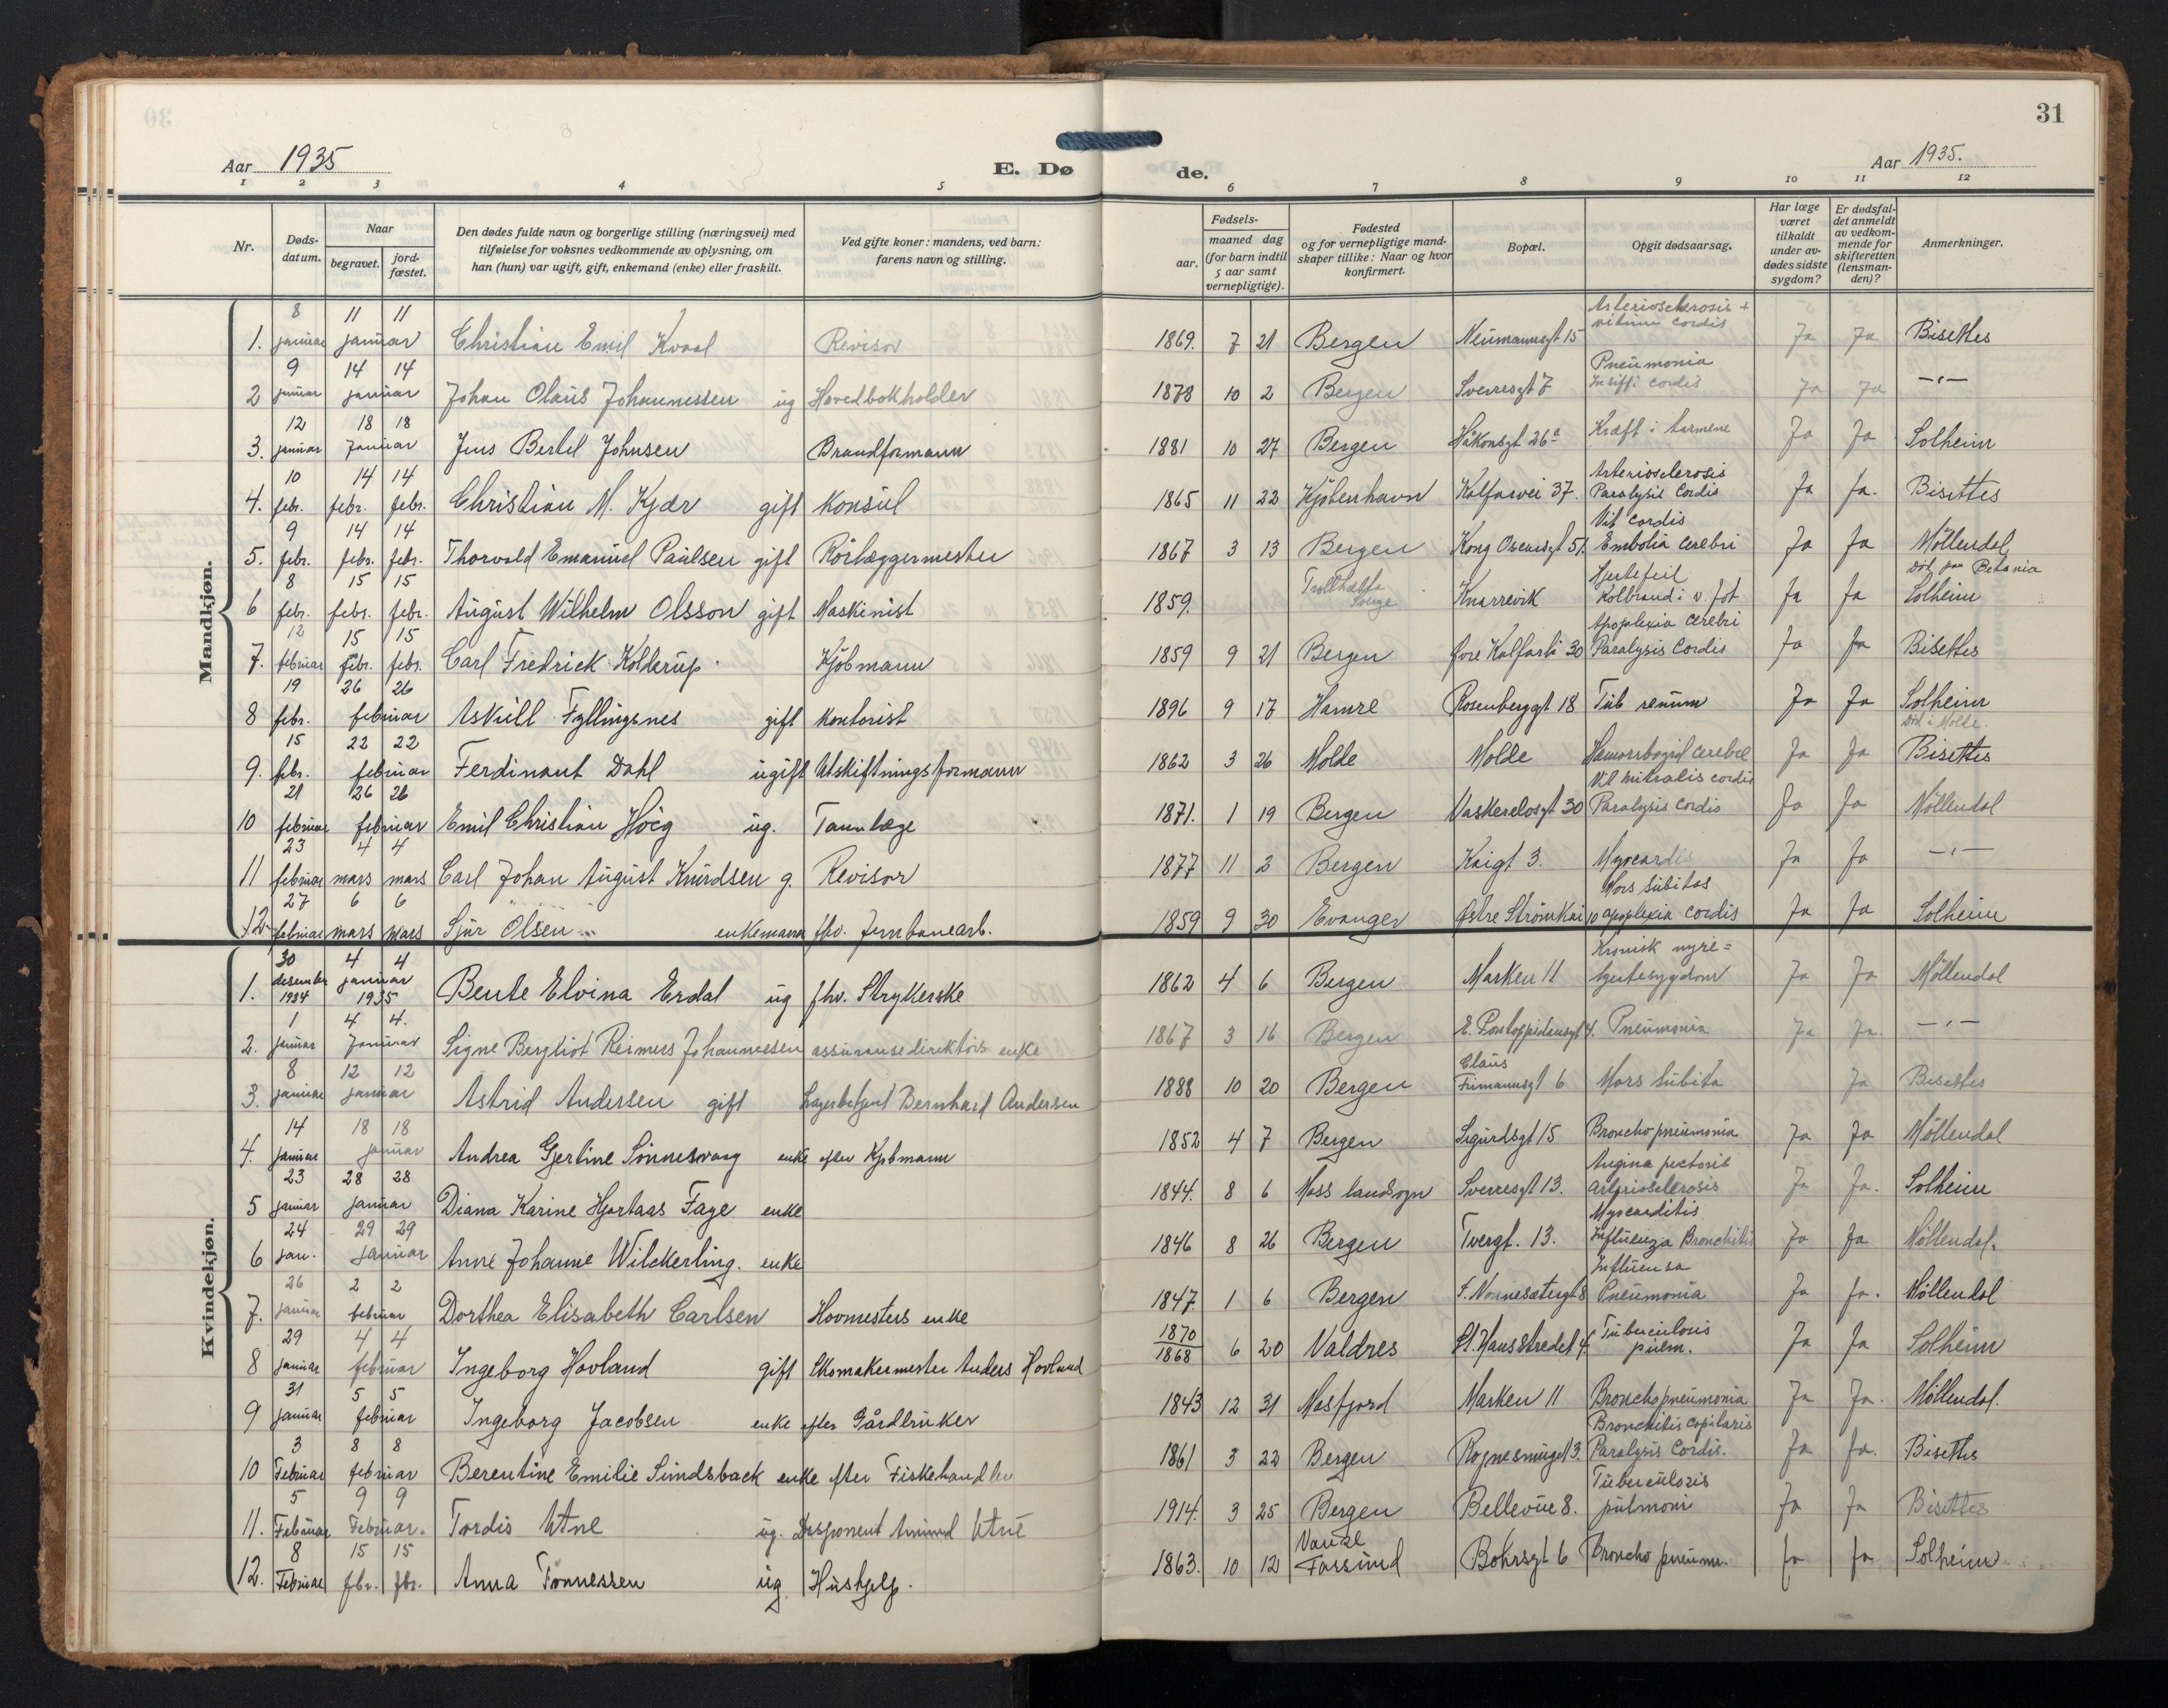 31
Aar 1935
E. Dø
de.
Aar 1935.
1 2 3 4 5 6 7 8 9 10 11 12
Nr.
Døds-
datum.
Naar
begravet.
jord-
fæstet.
Den dødes fulde navn og borgerlige stilling (næringsvei) med
tilføielse for voksnes vedkommende av oplysning, om
han (hun) var ugift, gift, enkemand (enke) eller fraskilt.
Ved gifte koner: mandens, ved barn:
farens navn og stilling.
Fødsels-
aar.
maaned dag
(for barn indtil
5 aar samt
vernepligtige).
Fødested
og for vernepligtige mand-
skaper tillike: Naar og hvor
konfirmert.
Bopæl.
Opgit dødsaarsag.
Har læge
været
tilkaldt
under av-
dødes sidste
sygdom?
Er dødsfal-
det anmeldt
av vedkom-
mende for
skifteretten
(lensman-
den)?
Anmerkninger.
Mandkjøn.
8 11 11 Arteriosclerosis +
1. januar januar Christian Emil Kvaal Revisor 1869. 7 21 Bergen Neumannsgt 15 vitium cordis Ja Ja Bisettes
9 14 14 Pneumonia
2 januar januar Johan Olaus Johannessen ug Hovedbokholder 1878 10 2 Bergen Sverresgt 7 Insuff. cordis Ja Ja —"—
12 18 18
3. januar Januar Jens Bertil Johnsen Brandformann 1881 10 27 Bergen Håkonsgt 26a Kræft i tarmene Ja Ja Solheim
10 14 14 Arteriosclerosis
4. febr. febr. febr. Christian M. Kjær gift Konsul 1865 11 22 Kjøbenhavn Kalfarvei 37. Paralysis Cordis Ja Ja. Bisettes
9 14 14 Vit cordis
5. febr. febr. febr. Thorvald Emanuel Paulsen gift Rørlæggermester 1867 3 13 Bergen Kong Oscarsgt 51. Embolia cerebri Ja Ja Möllendal
8 15 15 Hjertefeil Död paa Betania
6 febr. febr. febr. August Wilhelm Olsson gift Maskinist 1859. Trollhätta Sverge Knarrevik Kolbrand i v. fot Ja Ja Solheim
12 15 15 Apoplexia cerebri
7. februar febr. febr. Carl Fredrick Kolderup Kjøbmann 1859 9 21 Bergen Øvre Kalfarb. 30 Paralysis Cordis Ja Ja Bisettes
19 26 26
8 febr. februar Askill Fyllingsnes gift Kontorist 1896 9 17 Hamre Rosenberggt 18 Tub renum Ja Ja Solheim
15 22 22 Död i Molde
9. febr. februar Ferdinant Dahl ugift Utskiftningsformann 1862 3 26 Molde Molde cerebri Ja Ja Bisettes
21 26 26 Vit mitralis cordis
10 februar februar Emil Christian Höeg ug. Tannlæge 1871. 1 19 Bergen Vaskerelvsgt 30 Paralysis Cordis Ja Ja Möllendal
23 4 4
11 februar mars mars Carl Johan August Knudsen g. Revisor 1877 11 2 Bergen Kaigt 3. Myocardis Ja Ja —"—
27 6 6 Mors subitas
12. februar mars mars Sjur Olsen enkemann fhv. Jernbanearb. 1859 9 30 Evanger Østre Strömkai 10 apoplexia cordis Ja Ja Solheim
Kvindekjøn.
30 4 4 Kronisk nyre=
1. desember 1934 januar 1935 Bente Elvina Erdal ug fhv. Strykerske 1862 4 6 Bergen Marken 11 hjertesygdom Ja Ja Möllendal
1 4 4.
2. januar Januar Signe Bergliot Reimers Johannessen assuransedirektörs enke 1867 3 16 Bergen E. Pontoppidansgt 4. Pneumonia Ja Ja. —"—
8 12 12 Claus
3. januar januar Astrid Andersen gift Lagerbetjent Bernhard Andersen 1888 10 20 Bergen Fimannsgt 6 Mors subita Ja Bisettes
14 18 18
4. januar januar Andrea Gjertine Sönnesvaag enke efter Kjøbmann 1852 4 7 Bergen Sigurdsgt 15 Bronchopneumonia Ja Ja Möllendal
23 28 28 Angina pectoris
5 januar januar Diana Karine Hjortaas Faye enke 1844. 8 6 Moss landsogn Sverresgt 13. arteriosclerosis Ja Ja. Solheim
24 29 29 Myocarditis
6 jan. januar Anne Johanne Wilckerling. enke 1846 8 26 Bergen Tvergt. 13. Influenza Bronchitis Ja Ja Möllendal.
26 2 2 Influensa
7. januar februar Dorthea Elisabeth Carlsen Hovmesters enke 1847 1 6 Bergen S. Nonnesætergt 8 Pneumonia Ja Ja. Möllendal
29 4 4 1870 Tuberculosis
8 januar februar Ingeborg Hovland gift Skomakermester Anders Hovland 1868 6 20 Valdres St. Hansstredet 4. pulm. Ja Ja Solheim
31 5 5
9 januar februar Ingeborg Jacobsen enke efter Gårdbruker 1843 12 31 Masfjord Marken 11 Bronchopneumonia Ja Ja. Möllendal.
3 8 8 Bronchitis capilaris
10 Februar februar Berentine Emilie Sundsback enke efter Fiskehandler 1861 3 22 Bergen Rognesmuget 3. Paralysis Cordis. Ja Ja. Bisettes
5 9 9 Tuberculosis
11. Februar Februar. Tordis Utne ug. Disponent Amund Utne 1914. 3 25 Bergen Bellevue 8. pulmoni Ja Ja Bisettes
8 15 15 Vanse
12. Februar fbr. fbr. Anna Tønnessen ug. Hushjelp. 1863. 10 12 Farsund Bohrsgt 6 Broncho pneum. Ja Ja Solheim